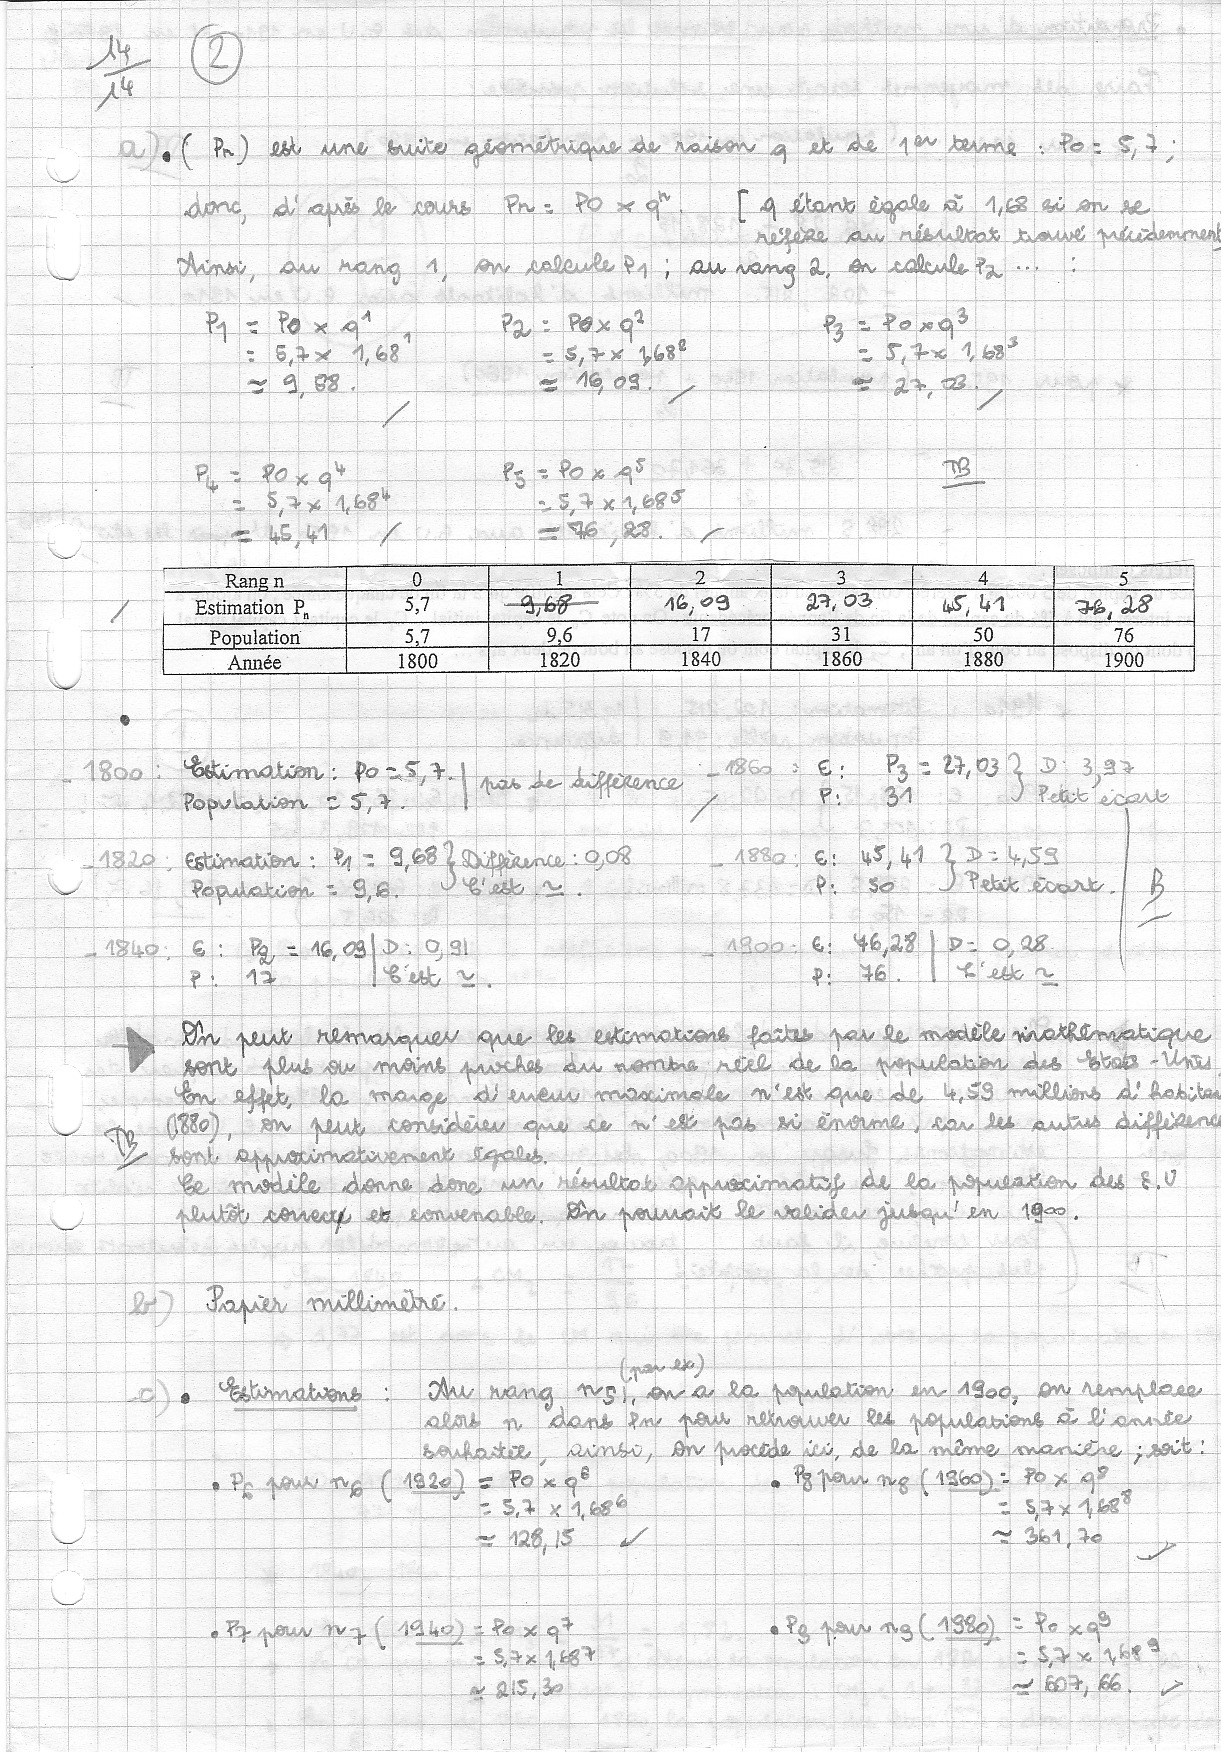 14/14
2
a) • (Pn) est une suite géométrique de raison q et de 1er terme : P0 = 5,7 ;
donc, d'après le cours Pn = P0 x q^n. [ q étant égale à 1,68 si on se
réfère au résultat trouvé précédemment
Ainsi, au rang 1, on calcule P1 ; au rang 2, on calcule P2 ... :
P1 = P0 x q^1 P2 = P0 x q^2 P3 = P0 x q^3
= 5,7 x 1,68^1 = 5,7 x 1,68^2 = 5,7 x 1,68^3
≃ 9,68. ≃ 16,09. ≃ 27,03.
P4 = P0 x q^4 P5 = P0 x q^5 TB
= 5,7 x 1,68^4 = 5,7 x 1,68^5
≃ 45,41 ≃ 76,28.
Rang n 0 1 2 3 4 5
Estimation Pn 5,7 9,68 16,09 27,03 45,41 76,28
Population 5,7 9,6 17 31 50 76
Année 1800 1820 1840 1860 1880 1900
•
- 1800 : Estimation : P0 = 5,7. | pas de différence
Population = 5,7.
- 1860 : E : P3 = 27,03 } D : 3,97
P : 31 Petit écart
- 1820 : Estimation : P1 = 9,68 } Différence : 0,08
Population = 9,6. C'est ≃.
- 1880 : E : 45,41 } D = 4,59
P : 50 Petit écart.
B
- 1840 : E : P2 = 16,09 | D : 0,91
P : 17 | C'est ≃.
- 1900 : E : 76,28 | D = 0,28
P : 76. | C'est ≃
→ On peut remarquer que les estimations faites par le modèle mathématique
sont plus ou moins proches du nombre réel de la population des Etats-Unis.
En effet, la marge d'erreur maximale n'est que de 4,59 millions d'habitan
(1880), on peut considérer que ce n'est pas si énorme, car les autres différence
TB
sont approximativement égales.
Ce modèle donne donc un résultat approximatif de la population des E.U
plutôt correct et convenable. On pourrait le valider jusqu'en 1900.
b) Papier millimétré.
(par ex)
c) • Estimations : Au rang n5, on a la population en 1900, on remplace
alors n dans Pn pour retrouver les populations à l'année
souhaitée, ainsi, on procède ici, de la même manière ; soit :
• P6 pour n6 (1920) = P0 x q^6
= 5,7 x 1,68^6
≃ 128,15
• P8 pour n8 (1960) = P0 x q^8
= 5,7 x 1,68^8
≃ 361,70
• P7 pour n7 (1940) = P0 x q^7
= 5,7 x 1,68^7
≃ 215,30
• P9 pour n9 (1980) = P0 x q^9
= 5,7 x 1,68^9
≃ 607,66.